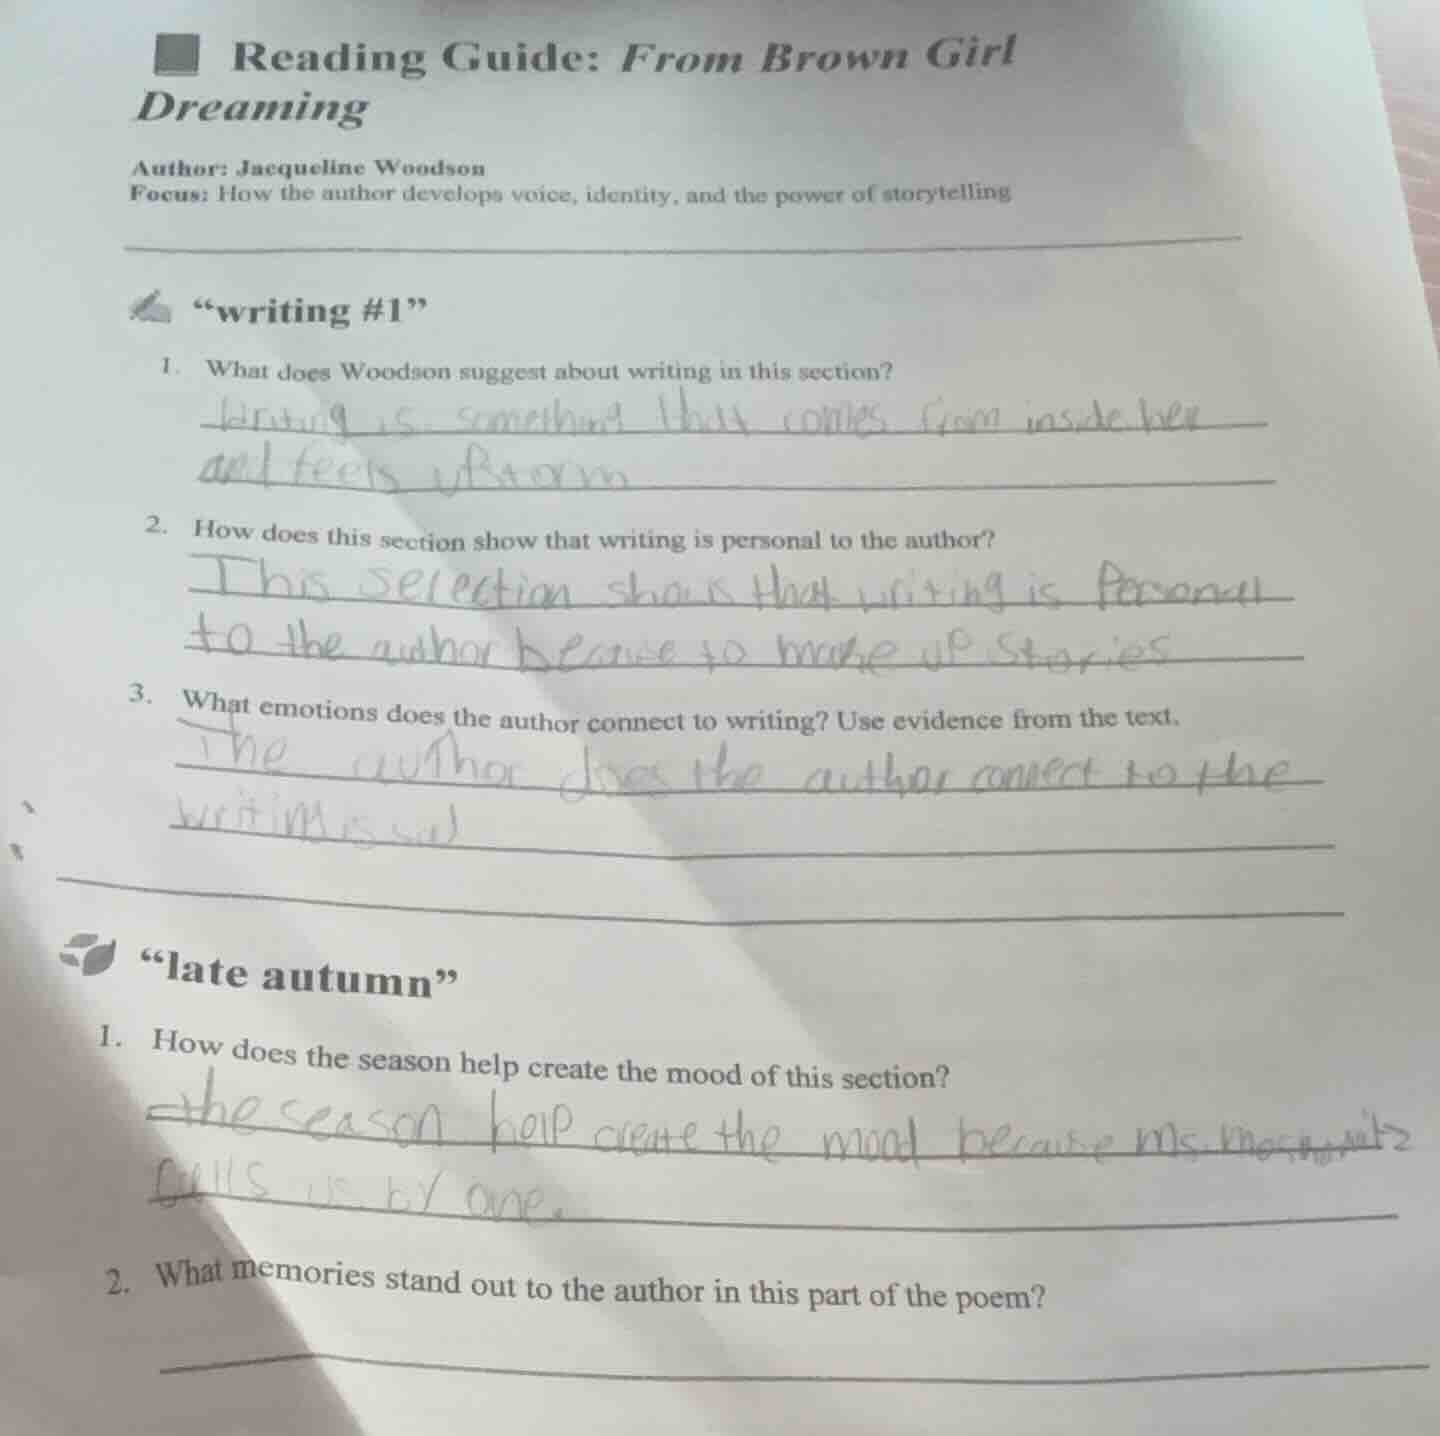 Reading Guide: From Brown Girl
Dreaming
Author: Jacqueline Woodson
Focus: How the author develops voice, identity, and the power of storytelling
“writing #1”
1. What does Woodson suggest about writing in this section?
Writing is something that comes from inside her
and feels
2. How does this section show that writing is personal to the author?
This selection shows that writing is Personal
to the author because to make up stories
3. What emotions does the author connect to writing? Use evidence from the text.
The author does the author connect to the
“late autumn”
1. How does the season help create the mood of this section?
the season help create the mood because Ms.
calls us by one.
2. What memories stand out to the author in this part of the poem?